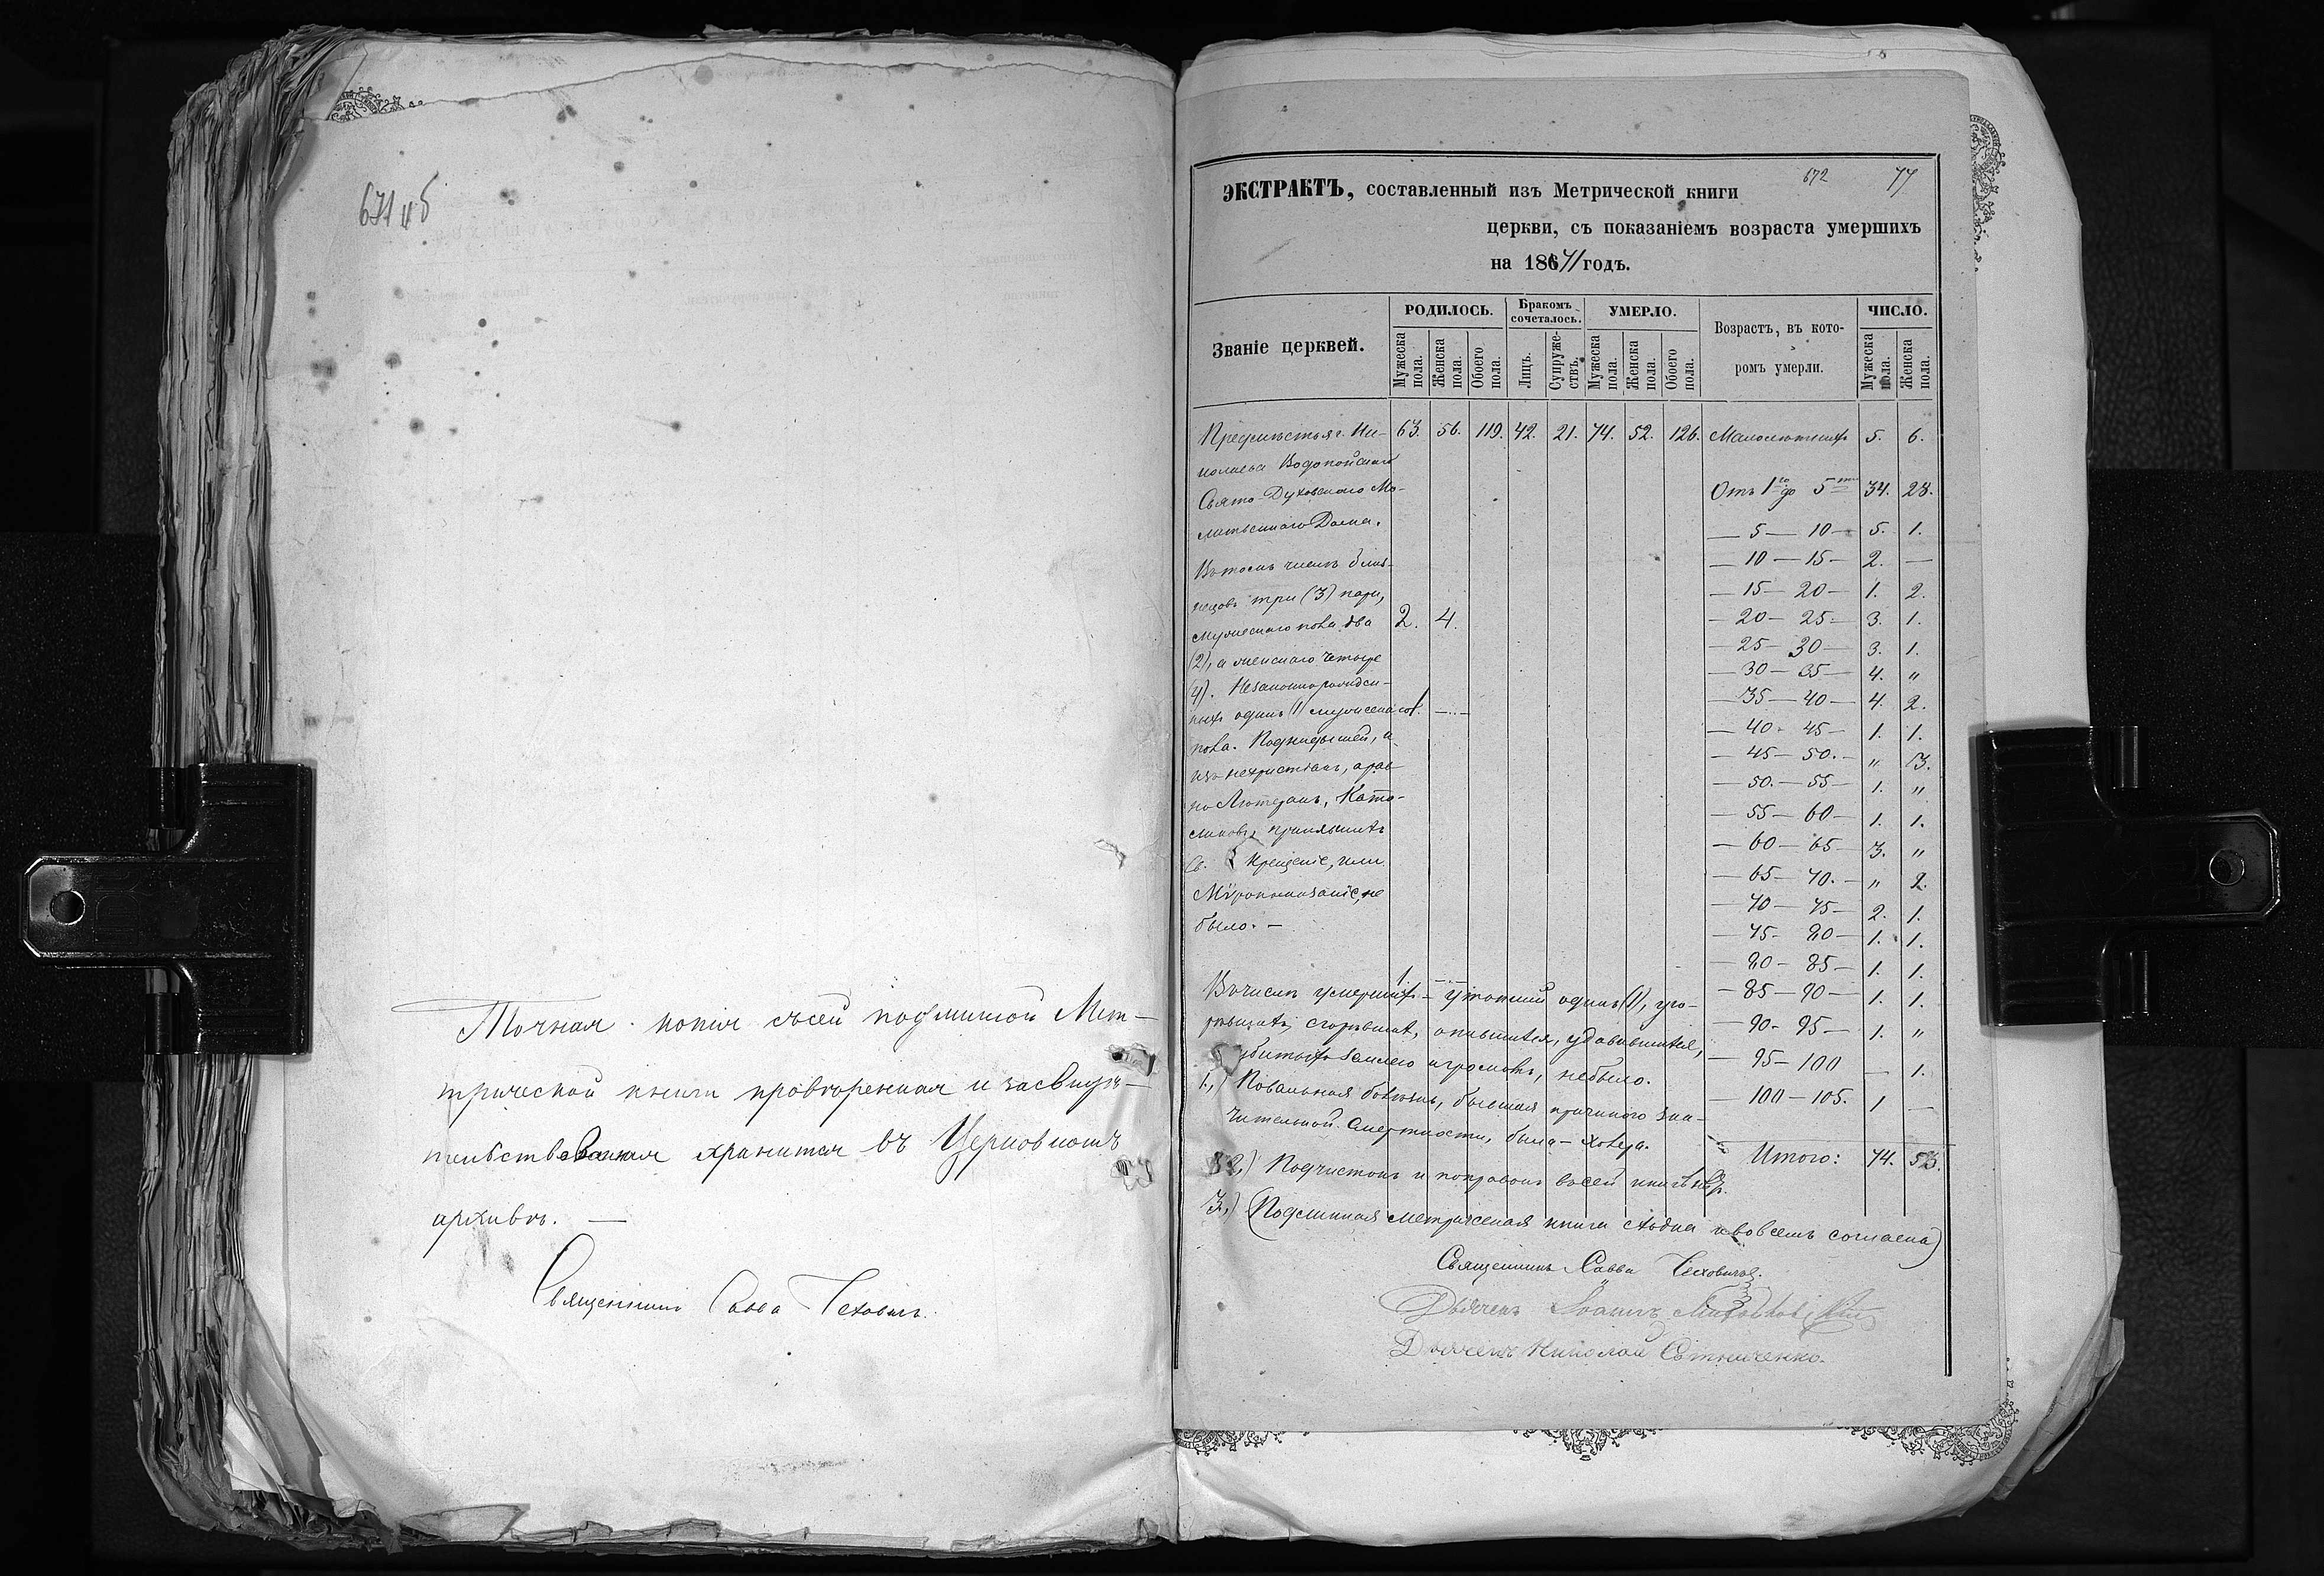 671 об
Точная копія съсей подлинной Мет-
трической книги провѣренная и засвидѣ-
тельствованная хранится въ Церковномъ
архивѣ. —
Священникъ Савва Чеховичъ.
672 77
ЭКСТРАКТЪ, составленный изъ Метрической книги
церкви, съ показаніемъ возраста умершихъ
на 1871 годъ.
Званіе церквей. РОДИЛОСЬ. Бракомъ сочеталось. УМЕРЛО. Возрастъ, въ кото-ромъ умерли. ЧИСЛО.
Мужеска пола. Женска пола. Обоего пола. Лицъ. Супруже-ствъ. Мужеска пола. Женска пола. Обоего пола. Мужеска пола. Женска пола.
Предмѣстья г. Ни- 63. 56. 119. 42. 21. 74. 52. 126. Малолѣтнихъ 5. 6.
колаева Водопойскаго
Свято-Духовскаго Мо- Отъ 1го до 5ти 34. 28.
литвеннаго Дома.
— 5 — 10 — 5. 1.
Въ томъ числѣ близ- — 10 — 15 — 2. —
нецовъ три (3) пары, — 15 — 20 — 1. 2.
мужескаго пола два 2. 4. — 20 — 25 — 3. 1.
(2), а женскаго четыре — 25 — 30 — 3. 1.
— 30 — 35 — 4. "
(4). Незаконнорожден- — 35 — 40 — 4. 2.
ныхъ одинъ (1) мужескаго 1. —
пола. Подкидышей, а — 40 — 45 — 1. 1.
изъ нехристіанъ, а рав- — 45 — 50. — " 3.
но Лютеранъ, Като- — 50. — 55 — 1. "
ликовъ, принявшихъ — 55 — 60 — 1. 1.
Св. Крещеніе, или — 60 — 65 — 3. "
Мѵропомазаніе, не — 65 — 70. — " 2.
было. — — 70 — 75 — 2. 1.
— 75 — 80 — 1. 1.
— 80 — 85 — 1. 1.
Въ числѣ умершихъ — утопшій одинъ (1), уго- 1. — — 85 — 90 — 1. 1.
рѣвшихъ, сгорѣвшихъ, опившихся, удавившихся, — 90 — 95 — 1. "
убитыхъ землею и громомъ, небыло. — 95 — 100 — 1.
1.) Повальная болѣзнь, бывшая причиною зна- — 100 — 105. 1 —
чительной смертности, была — холера.
Итого: 74. 53.
2.) Подчистокъ и поправокъ въ сей книгѣ нѣтъ.
3.) (Подлинная метрическая книга сходна и во всемъ согласна)
Священникъ Савва Чеховичъ.
Дьячекъ Іоаннъ
Дьячекъ Николай Ситниченко.